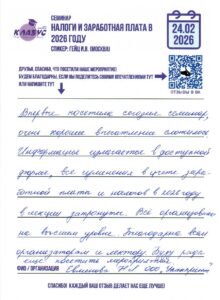 КЛАБУС
СЕМИНАР
НАЛОГИ И ЗАРАБОТНАЯ ПЛАТА В
2026 ГОДУ
СПИКЕР: ГЕЙЦ И.В. (МОСКВА)
24.02
2026
ДРУЗЬЯ, СПАСИБО, ЧТО ПОСЕТИЛИ НАШЕ МЕРОПРИЯТИЕ!
БУДЕМ БЛАГОДАРНЫ, ЕСЛИ ВЫ ПОДЕЛИТЕСЬ СВОИМИ ВПЕЧАТЛЕНИЯМИ ТУТ
ИЛИ НАПИШИТЕ ТУТ
ОТЗЫВЫ В ВК
Впервые посетила сегодня семинар,
очень хорошее впечатление сложилось
Информация излагается в доступной
форме, все изменения в учете зара-
ботной платы и налогов в 2026 году
в лекции затронуты. Всё организовано
на высшем уровне. Благодарю всех
организаторов и лектора. Буду рада
еще посетить мероприятия.
ФИО / ОРГАНИЗАЦИЯ Н.И ООО
СПАСИБО! КАЖДЫЙ ВАШ ОТЗЫВ ДЕЛАЕТ НАС ЕЩЕ ЛУЧШЕ!